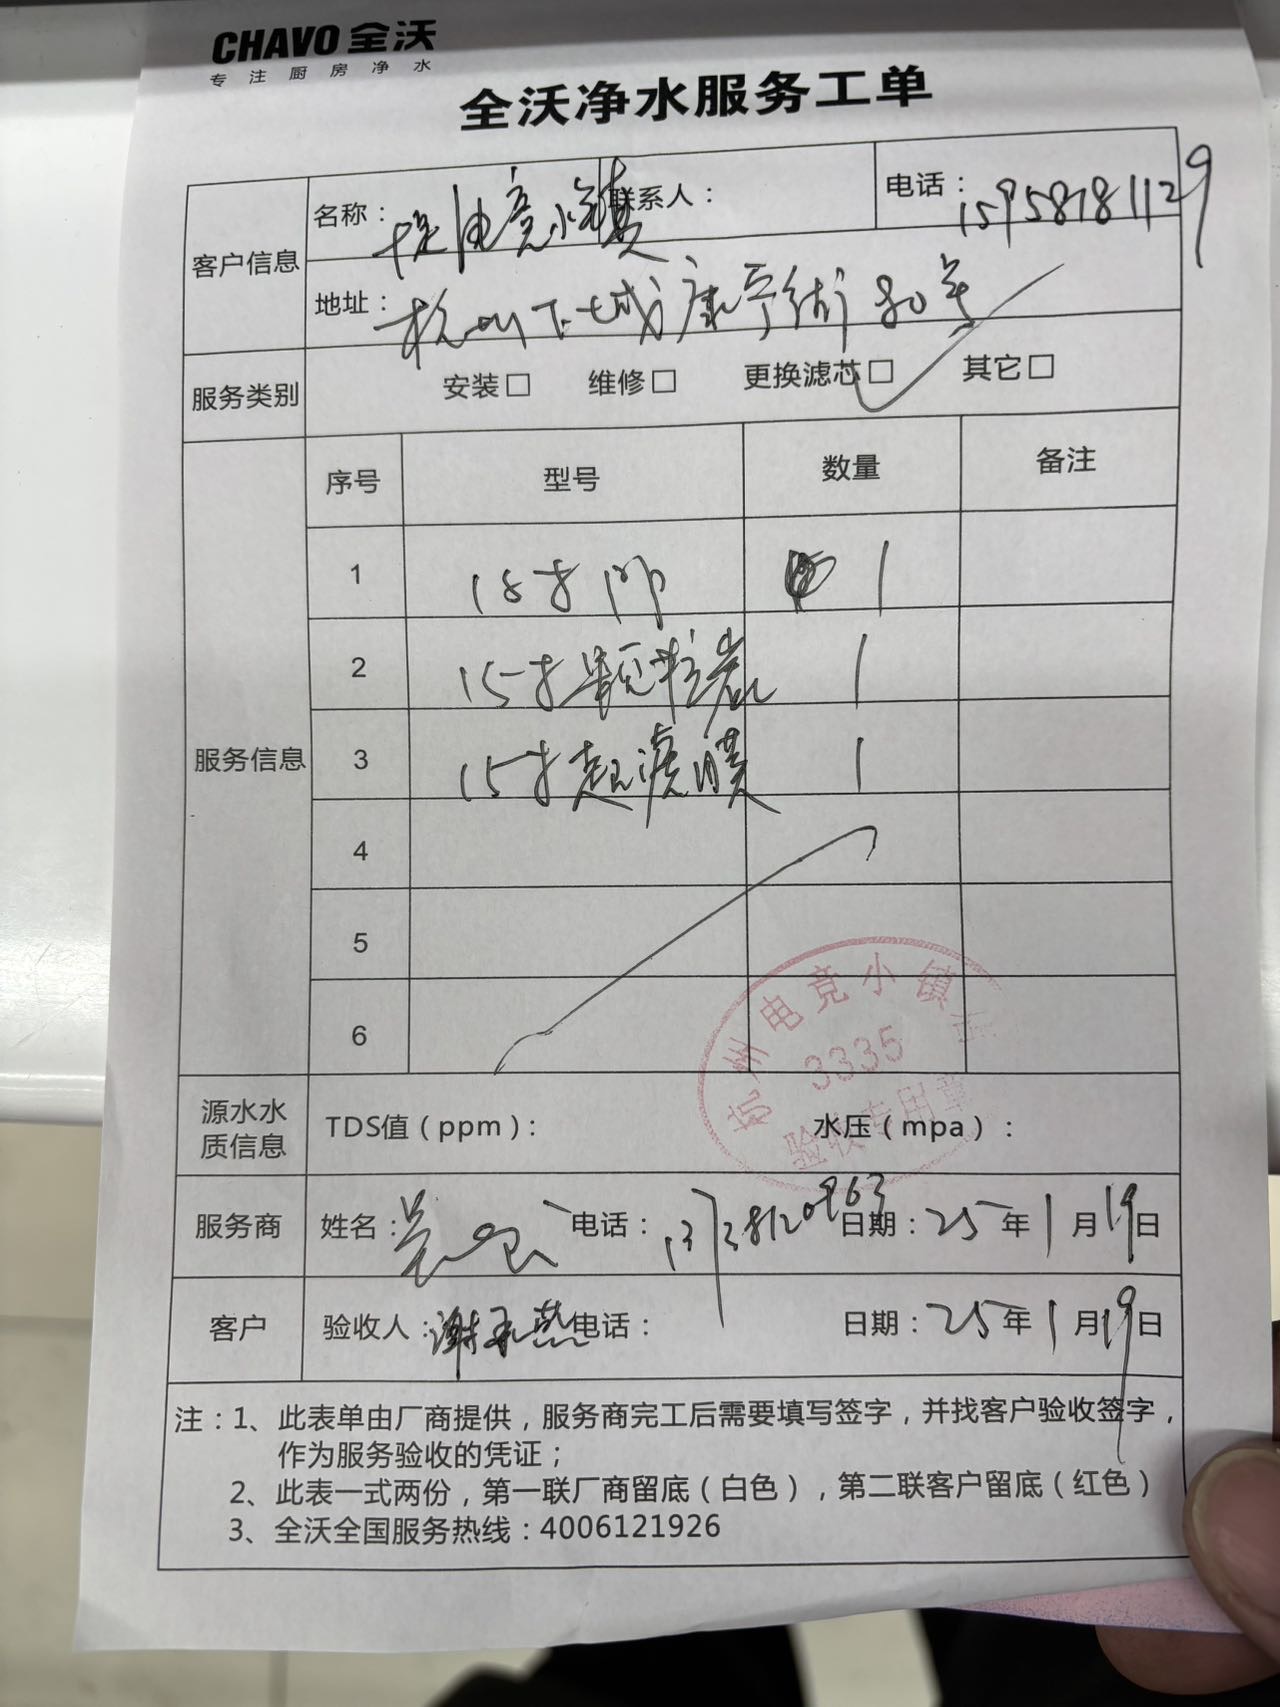 CHAVO 全沃
专注厨房净水
全沃净水服务工单
客户信息 名称: 电竞小镇 联系人: 电话: 15958181129
地址: 杭州下城康宁街80号
服务类别 安装□ 维修□ 更换滤芯□ 其它□
服务信息 序号 型号 数量 备注
1 1
2 15寸颗粒炭 1
3 15寸超滤膜 1
4
5
6
杭州电竞小镇
3335
验收专用章
源水水质信息 TDS值(ppm): 水压(mpa):
服务商 姓名: 吴 电话: 日期: 25年1月19日
客户 验收人: 谢 燕 电话: 日期: 25年1月19日
注:1、此表单由厂商提供,服务商完工后需要填写签字,并找客户验收签字,
作为服务验收的凭证;
2、此表一式两份,第一联厂商留底(白色),第二联客户留底(红色)
3、全沃全国服务热线:4006121926